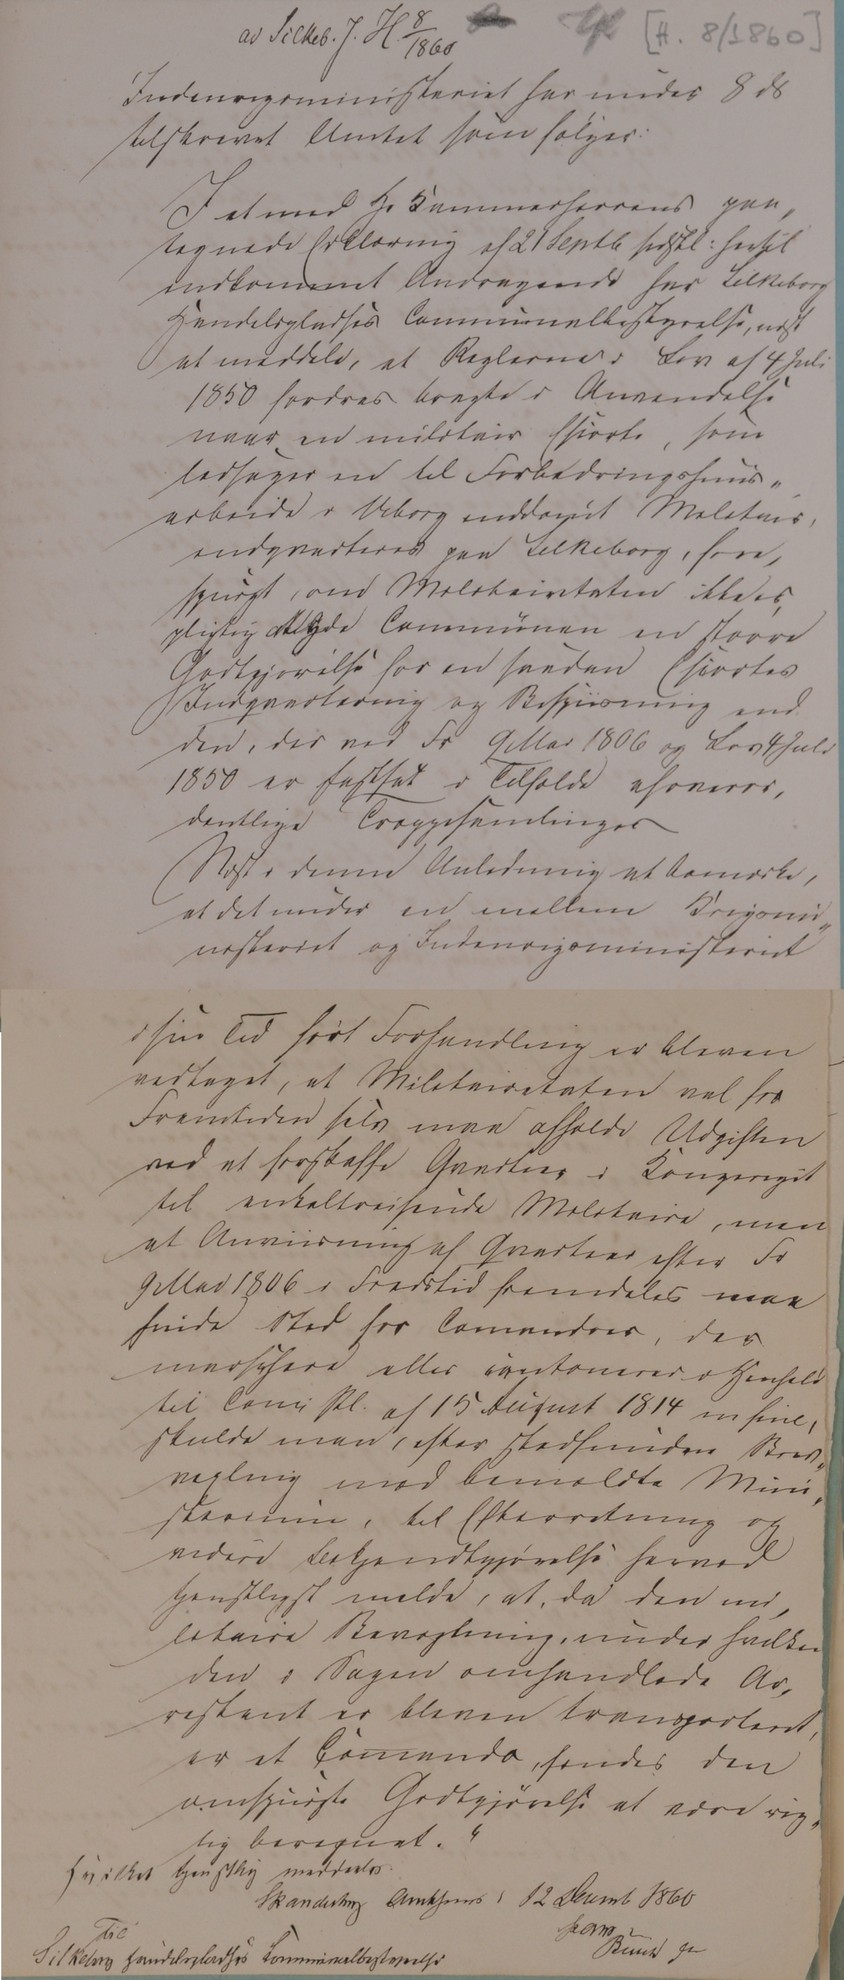 ad Silkeb. J. H. 8/1860 [H. 8/1860]
Indenrigsministeriet har under 8 ds
tilskrevet Amtet som følger:
I et med Hr Kammerherrens paa„
tegnede Erklæring af 21 Septb sidstl: hertil
indkommet Andragende har Silkeborg
Handelsplads's Communalbestyrelse, næst
at meddele, at Reglerne i Lov af 4 Juli
1850 fordres bragte i Anvendelse
naar en militair Escorte, som
ledsager en til Forbedringshuus„
arbeide i Viborg inddømt Militair,
indqvarteres paa Silkeborg, fore„
spurgt, om Militairetaten ikke er
pligtig at yde Communen en større
Godtgjørelse for en saadan Escortes
Indqvartering og Bespiisning end
den, der ved Fr 9 Mai 1806 og Lov 4 Juli
1850 er fastsat i Tilfælde af overor„
dentlige Troppesamlinger
Næst i denne Anledning at bemærke,
at det under en mellem Krigsmi„
nisteriet og Indenrigsministeriet
i sin Tid ført Forhandling er bleven
vedtaget, at Militairetaten vel for
Fremtiden selv maa afholde Udgiften
ved at forskaffe Qvarteer i Kongeriget
til enkeltreisende Militaire, men
at Anviisning af Qvarteer efter Fr
9 Mai 1806 i Fredstid fremdeles maa
finde Sted for Comandoer, der
marschere eller cantonerer i Henhold
til Canc: Pl. af 15 August 1814 in fine,
skulde man, efter stedfunden Brev„
vexling med bemeldte Mini„
sterium, til Efterretning og
videre Bekjendtgjørelse herved
tjenstligst melde, at, da den mi„
litaire Bevogtning, under hvilken
den i Sagen omhandlede Ar„
restant er bleven transporteret,
er et Comando, findes den
omspurgte Godtgjørelse at være rig„
tig beregnet."
Hvilket tjenstlig meddeles.
Skanderborg Amthuus, 12 Decemb 1860
Til
Silkeborg Handelsplads's Communalbestyrelse